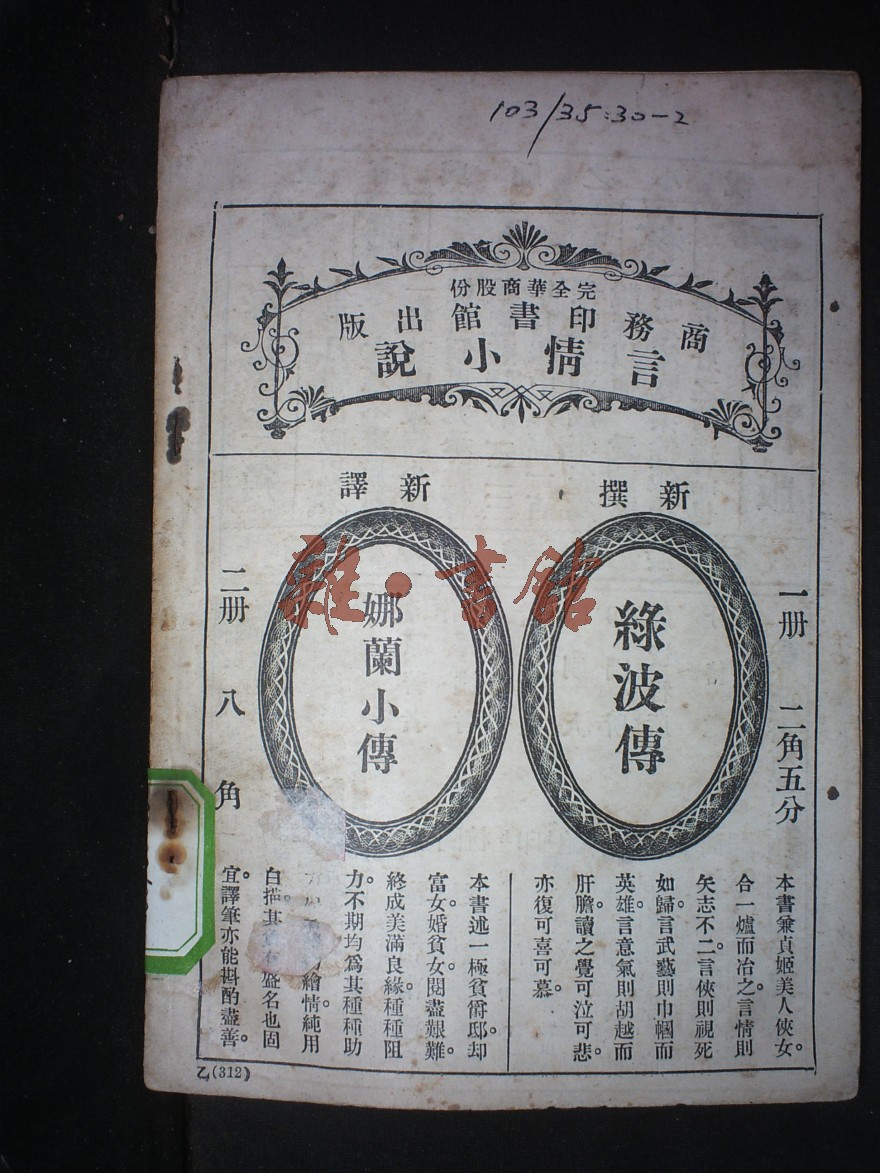 103/35:30-2
完全華商股份
商務印書館出版
言情小說
新撰
綠波傳
一册 二角五分
本書兼貞姬美人俠女。
合一爐而冶之言情則
矢志不二。言俠則視死
如歸言武藝則巾幗而
英雄。言意氣則胡越而
肝膽讀之覺可泣可悲。
亦復可喜可慕。
新譯
娜蘭小傳
二册 八角
本書述一極貧爵邸。却
富女婚貧女閱盡艱難。
終成美滿良緣。種種阻
力不期均爲其種種助
繪情純用
白描。其 盛名也固
宜。譯筆亦能斟酌盡善。
乙(312)
雜·書館